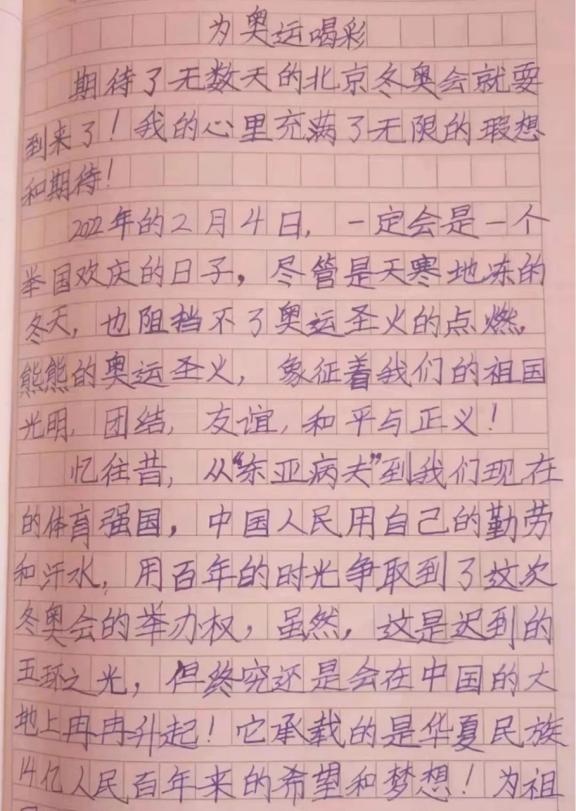 为奥运喝彩
期待了无数天的北京冬奥会就要
到来了！我的心里充满了无限的瑕想
和期待！
2022年的2月4日，一定会是一个
举国欢庆的日子，尽管是天寒地冻的
冬天，也阻挡不了奥运圣火的点燃，
熊熊的奥运圣火，象征着我们的祖国
光明，团结，友谊，和平与正义！
忆往昔，从“东亚病夫”到我们现在
的体育强国，中国人民用自己的勤劳
和汗水，用百年的时光争取到了这次
冬奥会的举办权，虽然，这是迟到的
五环之光，但终究还是会在中国的大
地上冉冉升起！它承载的是华夏民族
14亿人民百年来的希望和梦想！为祖